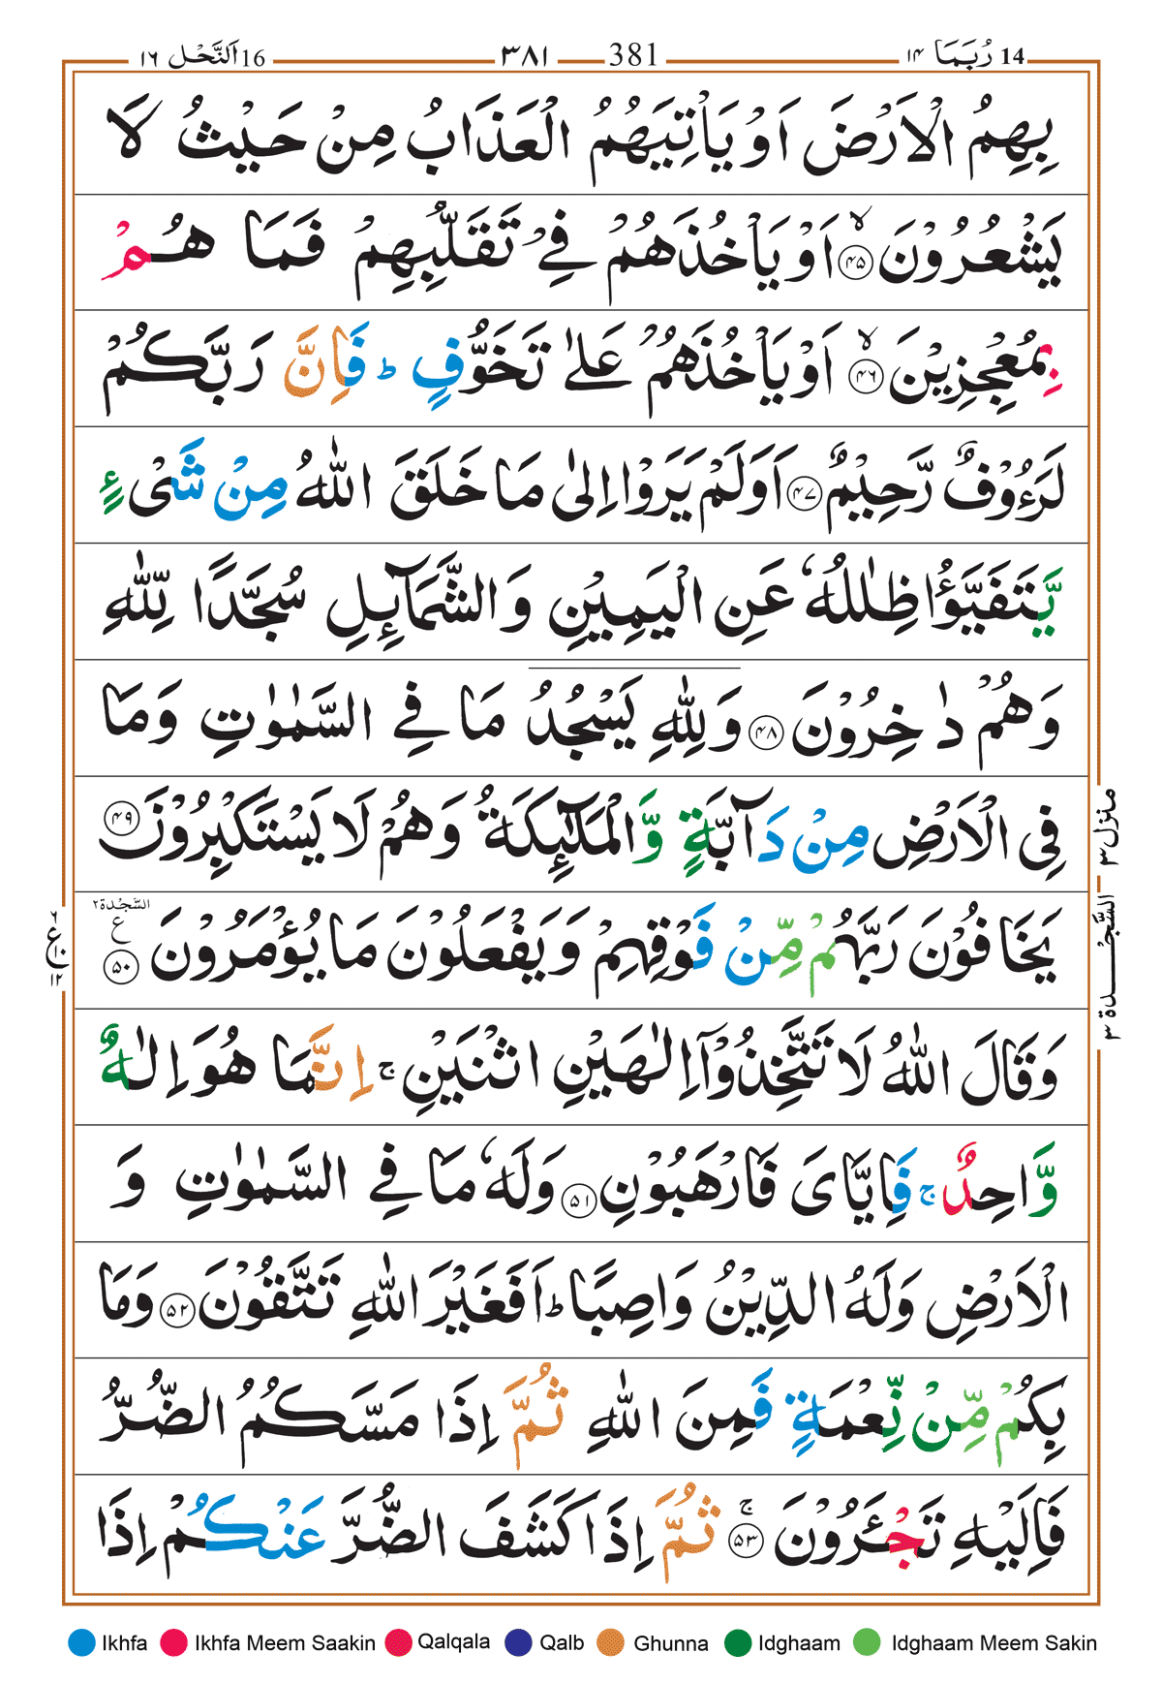 14 رُبَمَا ۱۴ 381 ۳۸۱ 16 اَلنَّحۡل ۱۶
بِهِمُ الۡاَرۡضَ اَوۡ يَاۡتِيَهُمُ الۡعَذَابُ مِنۡ حَيۡثُ لَا
يَشۡعُرُوۡنَۙ‏ ﴿۴۵﴾ اَوۡ يَاۡخُذَهُمۡ فِىۡ تَقَلُّبِهِمۡ فَمَا هُمۡ
بِمُعۡجِزِيۡنَۙ‏ ﴿۴۶﴾ اَوۡ يَاۡخُذَهُمۡ عَلٰى تَخَوُّفٍؕ فَاِنَّ رَبَّكُمۡ
لَرَءُوۡفٌ رَّحِيۡمٌ‏ ﴿۴۷﴾ اَوَلَمۡ يَرَوۡا اِلٰى مَا خَلَقَ اللّٰهُ مِنۡ شَىۡءٍ
يَّتَفَيَّؤُا ظِلٰلُهٗ عَنِ الۡيَمِيۡنِ وَالشَّمَآٮِٕلِ سُجَّدًا لِّلّٰهِ
وَهُمۡ دٰخِرُوۡنَ‏ ﴿۴۸﴾ وَلِلّٰهِ يَسۡجُدُ مَا فِى السَّمٰوٰتِ وَمَا
فِى الۡاَرۡضِ مِنۡ دَآبَّةٍ وَّالۡمَلٰۤٮِٕكَةُ وَهُمۡ لَا يَسۡتَكۡبِرُوۡنَ‏ ﴿۴۹﴾
يَخَافُوۡنَ رَبَّهُمۡ مِّنۡ فَوۡقِهِمۡ وَيَفۡعَلُوۡنَ مَا يُؤۡمَرُوۡنَ ﴿۵۰﴾ ع السَّجْدَة۲
وَقَالَ اللّٰهُ لَا تَتَّخِذُوۡۤا اِلٰهَيۡنِ اثۡنَيۡنِ‌ۚ اِنَّمَا هُوَ اِلٰـهٌ
وَّاحِدٌ‌ ۚ فَاِيَّاىَ فَارۡهَبُوۡنِ‏ ﴿۵۱﴾ وَلَهٗ مَا فِى السَّمٰوٰتِ وَ
الۡاَرۡضِ وَلَهُ الدِّيۡنُ وَاصِبًا‌ ؕ اَفَغَيۡرَ اللّٰهِ تَتَّقُوۡنَ‏ ﴿۵۲﴾ وَمَا
بِكُمۡ مِّنۡ نِّعۡمَةٍ فَمِنَ اللّٰهِ ثُمَّ اِذَا مَسَّكُمُ الضُّرُّ
فَاِلَيۡهِ تَجۡئَرُوۡنَ‌ۚ‏ ﴿۵۳﴾ ثُمَّ اِذَا كَشَفَ الضُّرَّ عَنۡكُمۡ اِذَا
منزل ۳
السَّجْدَة ۳
۶
ع
۱۰
۱۲
Ikhfa Ikhfa Meem Saakin Qalqala Qalb Ghunna Idghaam Idghaam Meem Sakin